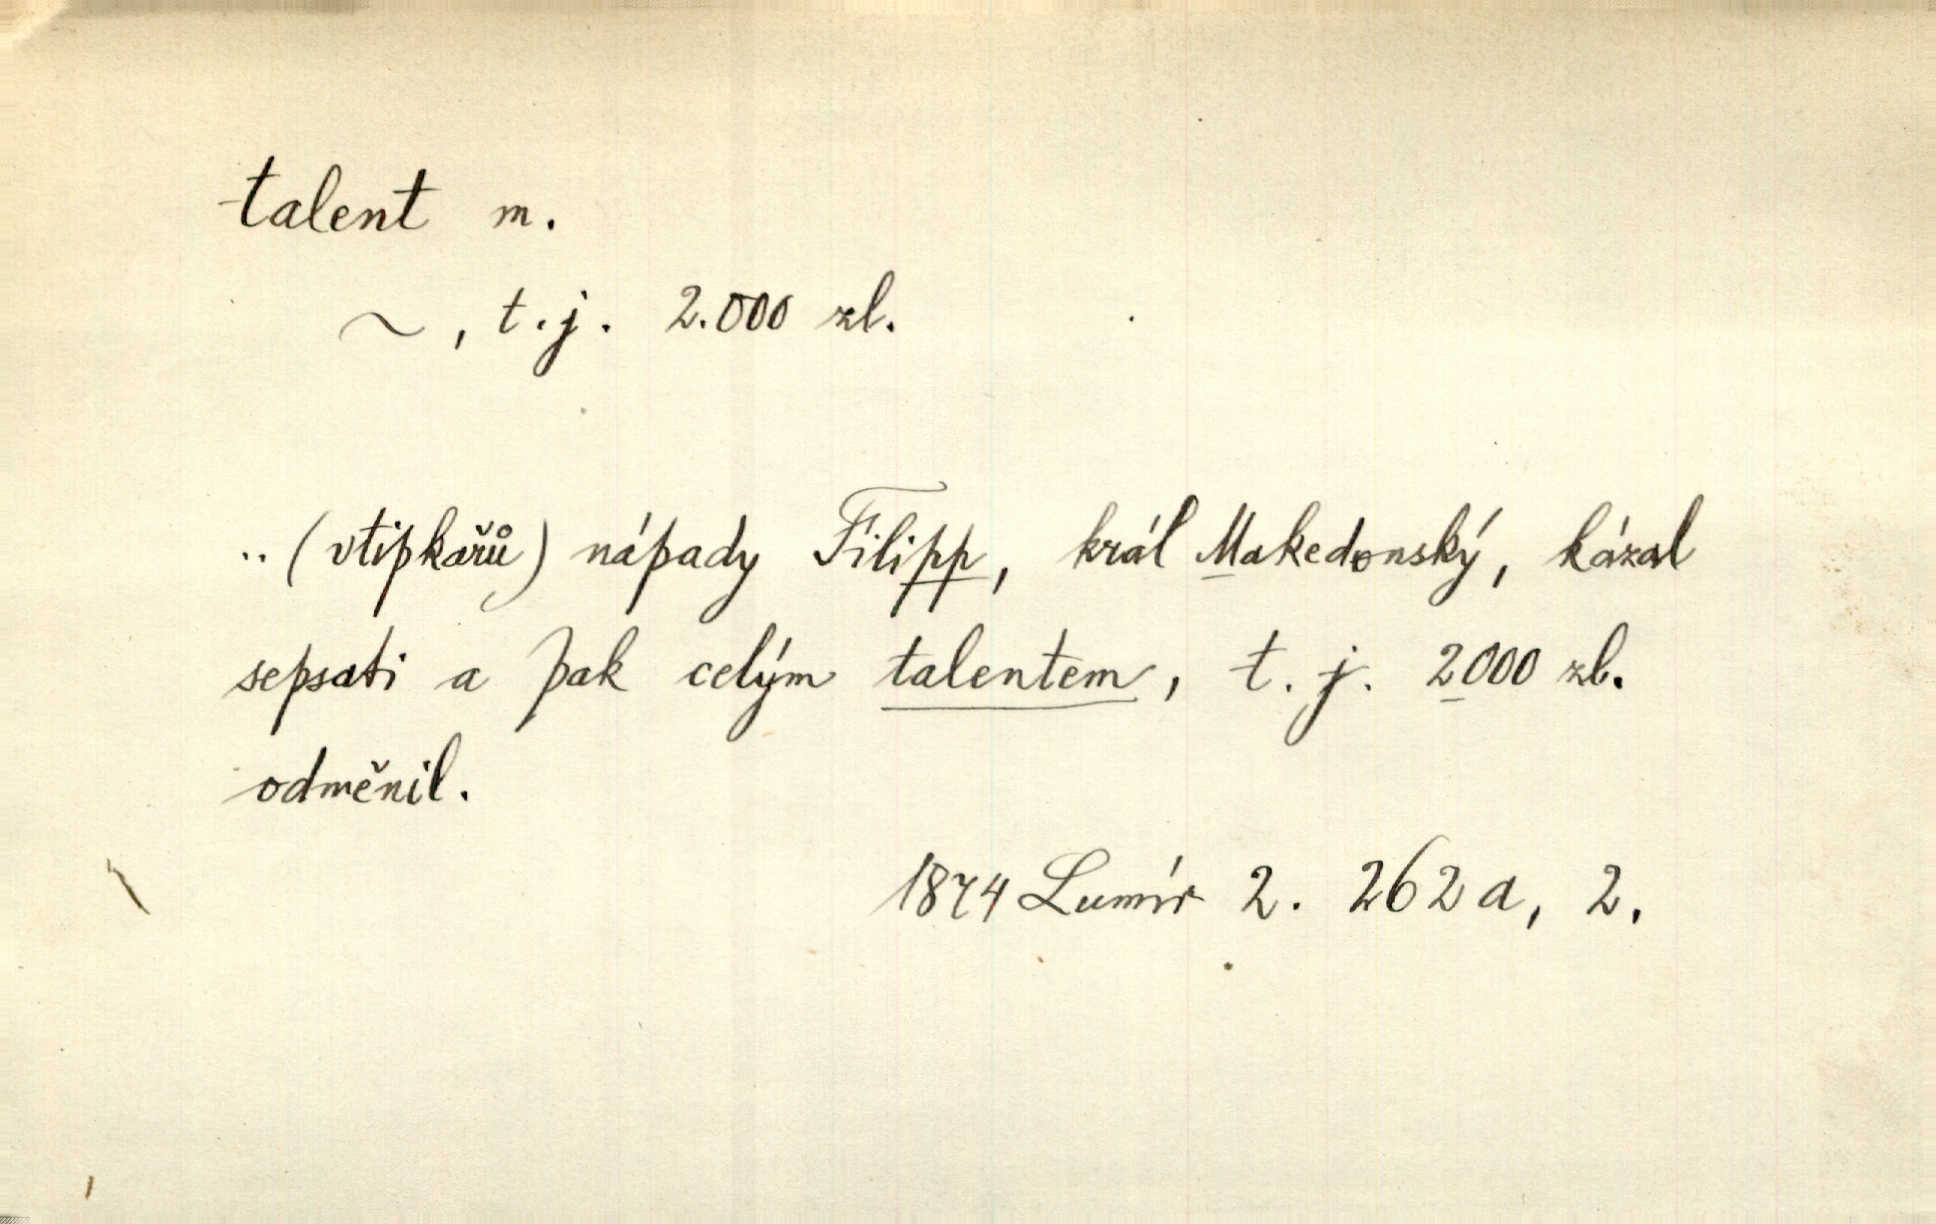 talent m.
~, t.j. 2.000 zl.
.. (vtipkařů) nápady Filipp, král Makedonský, kázal
sepsati a pak celým talentem, t. j. 2000 zl.
odměnil.
1874 Lumír 2. 262a, 2.